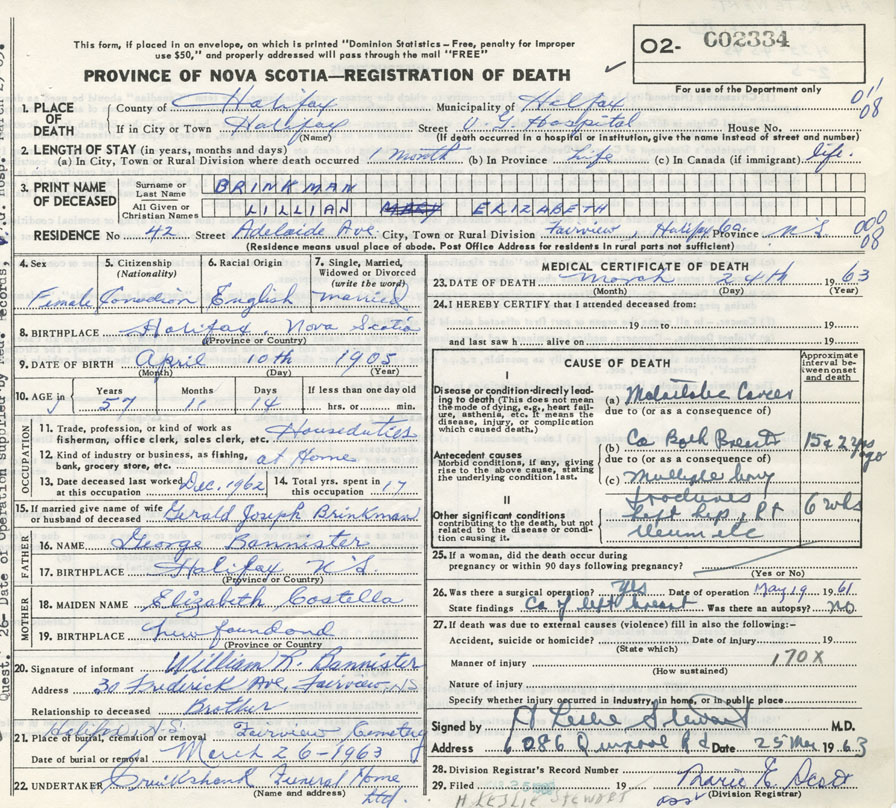 This form, if placed in an envelope, on which is printed "Dominion Statistics – Free, penalty for improper
use $50," and properly addressed will pass through the mail "FREE"
PROVINCE OF NOVA SCOTIA—REGISTRATION OF DEATH
O2- 002334
For use of the Department only
011
08
1. PLACE OF DEATH
County of Halifax Municipality of Halfax
If in City or Town Halifax Street V. G. Hospital House No.
(Name) (If death occurred in a hospital or institution, give the name instead of street and number)
2. LENGTH OF STAY (in years, months and days)
(a) In City, Town or Rural Division where death occurred 1 month (b) In Province Life (c) In Canada (if immigrant) life.
3. PRINT NAME OF DECEASED
Surname or Last Name BRINKMAN
All Given or Christian Names LILLIAN MARY ELIZABETH
RESIDENCE No 42 Street Adelaide Ave City, Town or Rural Division Fairview, Halifax Co. Province N'S
000
08
(Residence means usual place of abode. Post Office Address for residents in rural parts not sufficient)
4. Sex Female
5. Citizenship (Nationality) Canadian
6. Racial Origin English
7. Single, Married, Widowed or Divorced (write the word) Married
8. BIRTHPLACE Halifax, Nova Scotia
(Province or Country)
9. DATE OF BIRTH April 10th 1905
(Month) (Day) (Year)
10. AGE in Years 57 Months 11 Days 14 If less than one day old hrs. or min.
OCCUPATION
11. Trade, profession, or kind of work as fisherman, office clerk, sales clerk, etc. Houseduties
12. Kind of industry or business, as fishing, bank, grocery store, etc. at Home
13. Date deceased last worked at this occupation Dec. 1962 14. Total yrs. spent in this occupation 17
15. If married give name of wife or husband of deceased Gerald Joseph Brinkman
FATHER
16. NAME George Bannister
17. BIRTHPLACE Halifax N'S
(Province or Country)
MOTHER
18. MAIDEN NAME Elizabeth Costella
19. BIRTHPLACE Newfoundland
(Province or Country)
20. Signature of informant William R. Bannister
Address 30 Frederick Ave, Fairview, NS
Relationship to deceased Brother
Halifax, N.S. Fairview Cemetery
21. Place of burial, cremation or removal
Date of burial or removal March 26-1963
22. UNDERTAKER Cruikshank Funeral Home Ltd.
(Name and address)
MEDICAL CERTIFICATE OF DEATH
23. DATE OF DEATH March 24th 1963
(Month) (Day) (Year)
24. I HEREBY CERTIFY that I attended deceased from:
19 to 19
and last saw h alive on 19
CAUSE OF DEATH
Approximate interval between onset and death
I
Disease or condition directly leading to death (This does not mean the mode of dying, e.g., heart failure, asthenia, etc. It means the disease, injury, or complication which caused death.)
(a)
due to (or as a consequence of)
Antecedent causes
Morbid conditions, if any, giving rise to the above cause, stating the underlying condition last.
(b) Ca Both Breasts 15 & 2 yrs ago
due to (or as a consequence of)
(c) Multiple bony fractures
II
Other significant conditions contributing to the death, but not related to the disease or condition causing it.
left hip, Rt Ileum etc 6 wks
25. If a woman, did the death occur during pregnancy or within 90 days following pregnancy?
(Yes or No)
26. Was there a surgical operation? yes Date of operation May 19 1961
State findings Ca of left breast Was there an autopsy? no
27. If death was due to external causes (violence) fill in also the following:–
Accident, suicide or homicide? Date of injury 19
(State which)
Manner of injury 170X
(How sustained)
Nature of injury
Specify whether injury occurred in industry, in home, or in public place
Signed by Leslie Stewart M.D.
Address 6086 Quinpool Rd Date 25 Mar 1963
28. Division Registrar's Record Number
29. Filed 19
(Division Registrar)
H LESLIE STEWART